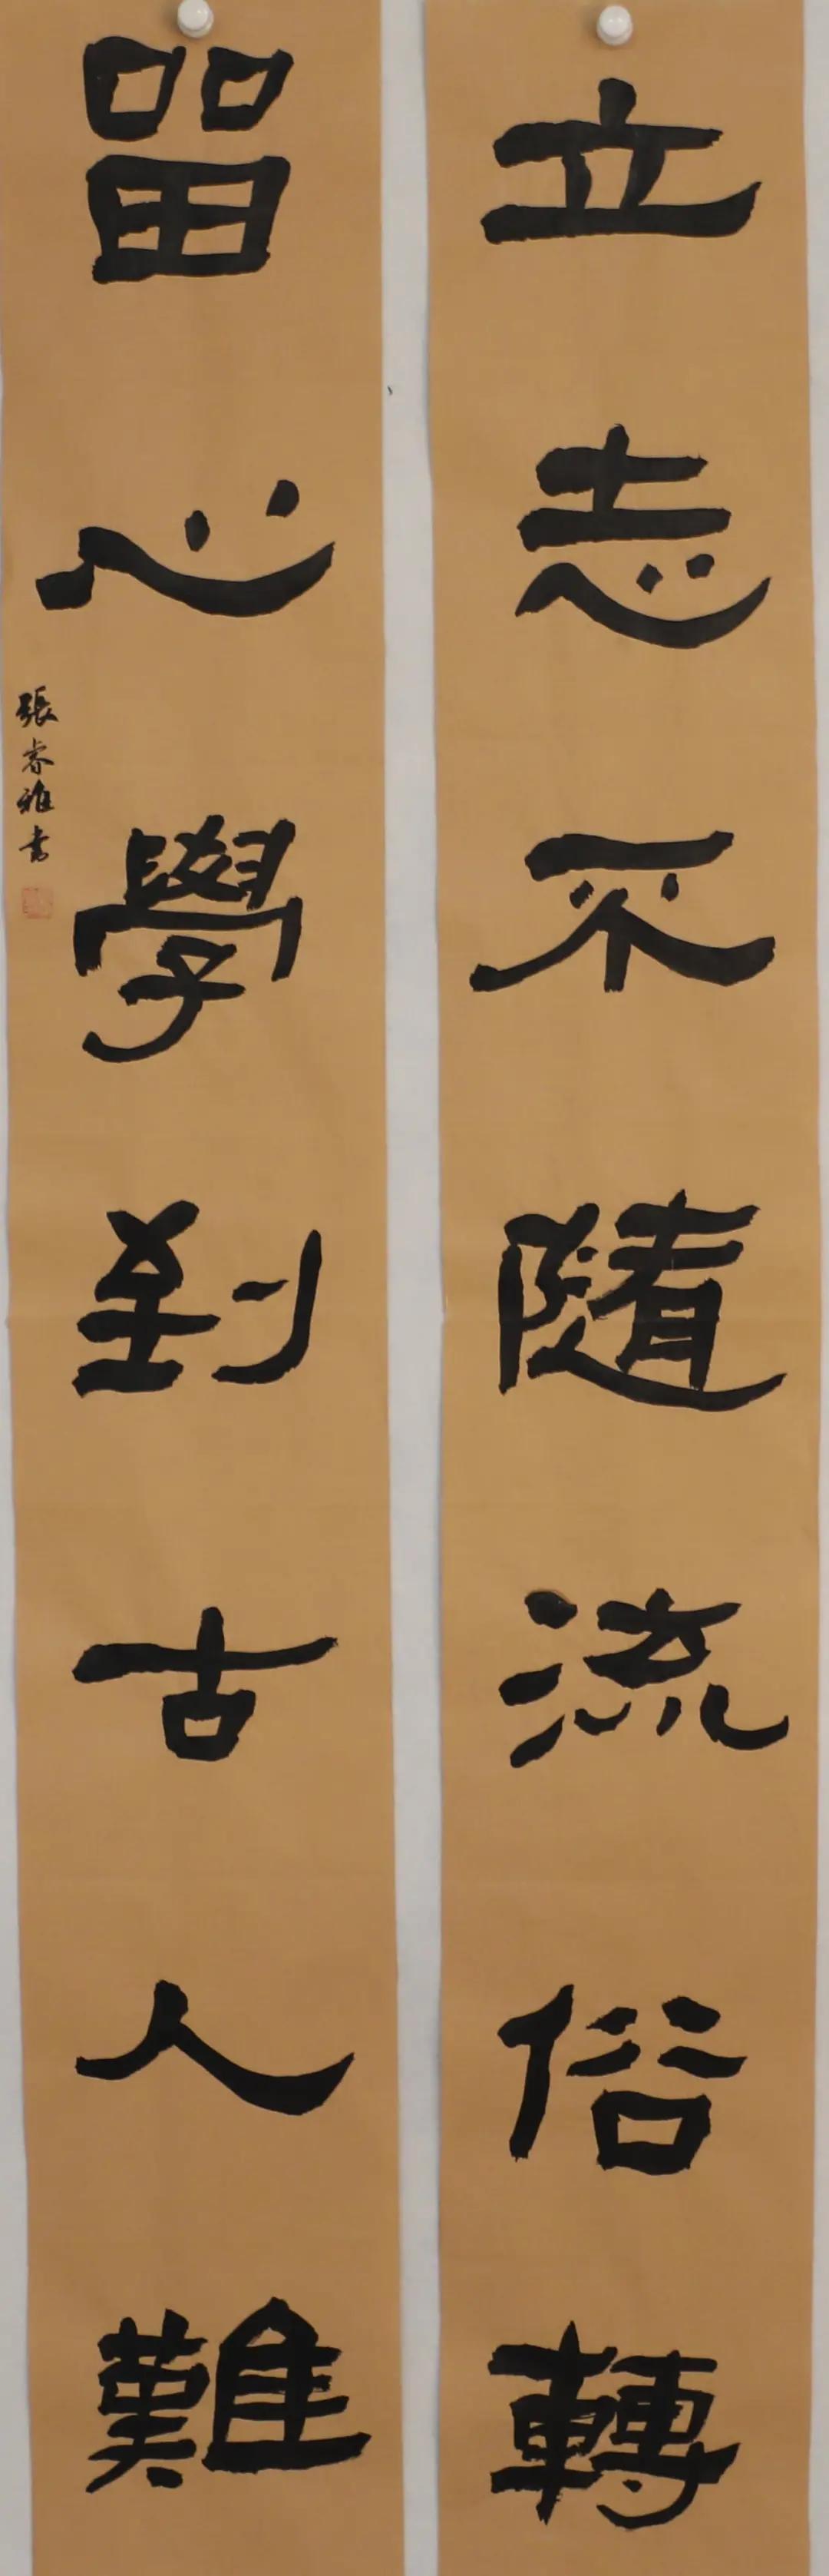 立志不隨流俗轉
留心學到古人難
張睿雅書